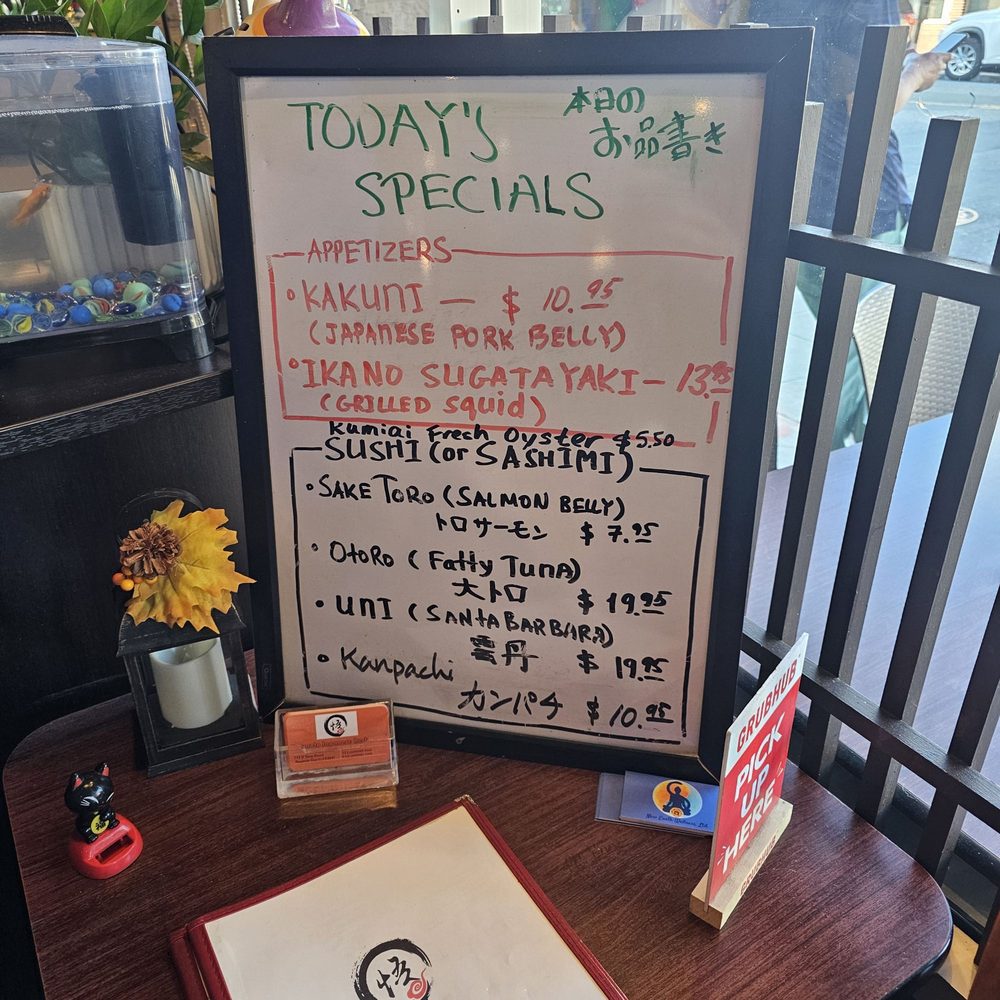 TODAY'S
本日の
お品書き
SPECIALS
APPETIZERS
• KAKUNI — $ 10.95
(JAPANESE PORK BELLY)
• IKANO SUGATAYAKI — 13.95
(GRILLED squid)
Kumiai Frech Oyster $5.50
SUSHI (or SASHIMI)
• SAKE TORO (SALMON BELLY)
トロサーモン $ 7.95
• OtoRo (Fatty TUNA)
大トロ $ 19.95
• UNI (SANTA BARBARA)
雲丹 $ 19.95
• Kanpachi
カンパチ $ 10.95
GRUBHUB
PICK
UP
HERE
New Earth Wellness, Ltd.
悟